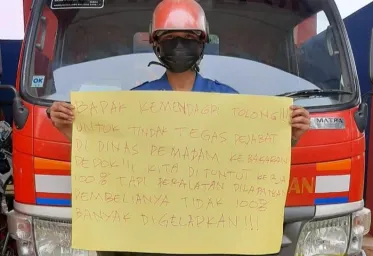 BAPAK KEMENDAGRI TOLONG!!!
UNTUK TINDAK TEGAS PEJABAT
DI DINAS PEMADAM KEBAKARAN
DEPOK!!! KITA DI TUNTUT KERJA
100% TAPI PERALATAN DILAPANGAN
PEMBELIANYA TIDAK 100%
BANYAK DIGELAPKAN!!!
OK